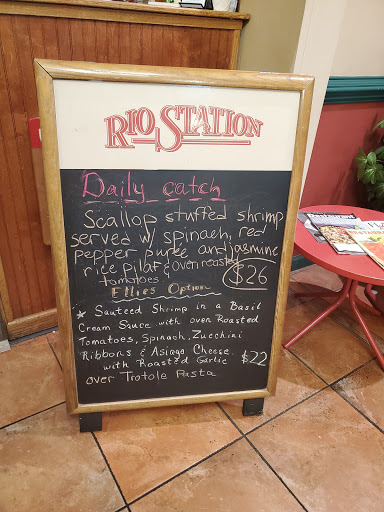 RIO STATION
Daily catch
Scallop stuffed shrimp
served w/ spinach, red
pepper puree and jasmine
rice pilaf & oven roasted
tomatoes $26
Ellies Option
* Sauteed Shrimp in a Basil
Cream Sauce with oven Roasted
Tomatoes, Spinach, Zucchini
Ribbons & Asiago Cheese
with Roasted Garlic $22
over Trotole Pasta